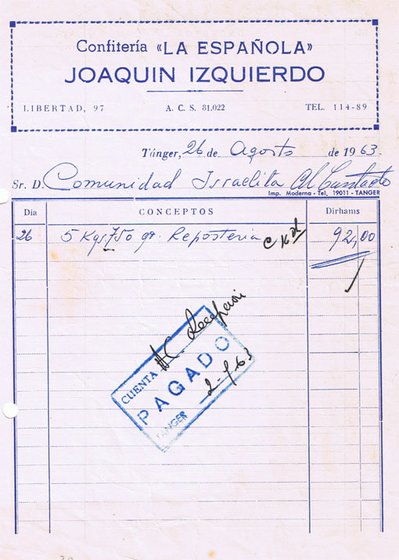 Confitería «LA ESPAÑOLA»
JOAQUIN IZQUIERDO
LIBERTAD, 97 A. C. S. 31,022 TEL. 114-89
Tánger, 26 de Agosto de 1963.
Sr. D. Comunidad Israelita Al Contado
Imp. Moderna - Tel, 19011 - TANGER
Día CONCEPTOS Dirhams
26 5 Kgs 750 gr. Reposteria 92,00
CUENTA
PAGADO
TANGER 2-9-63